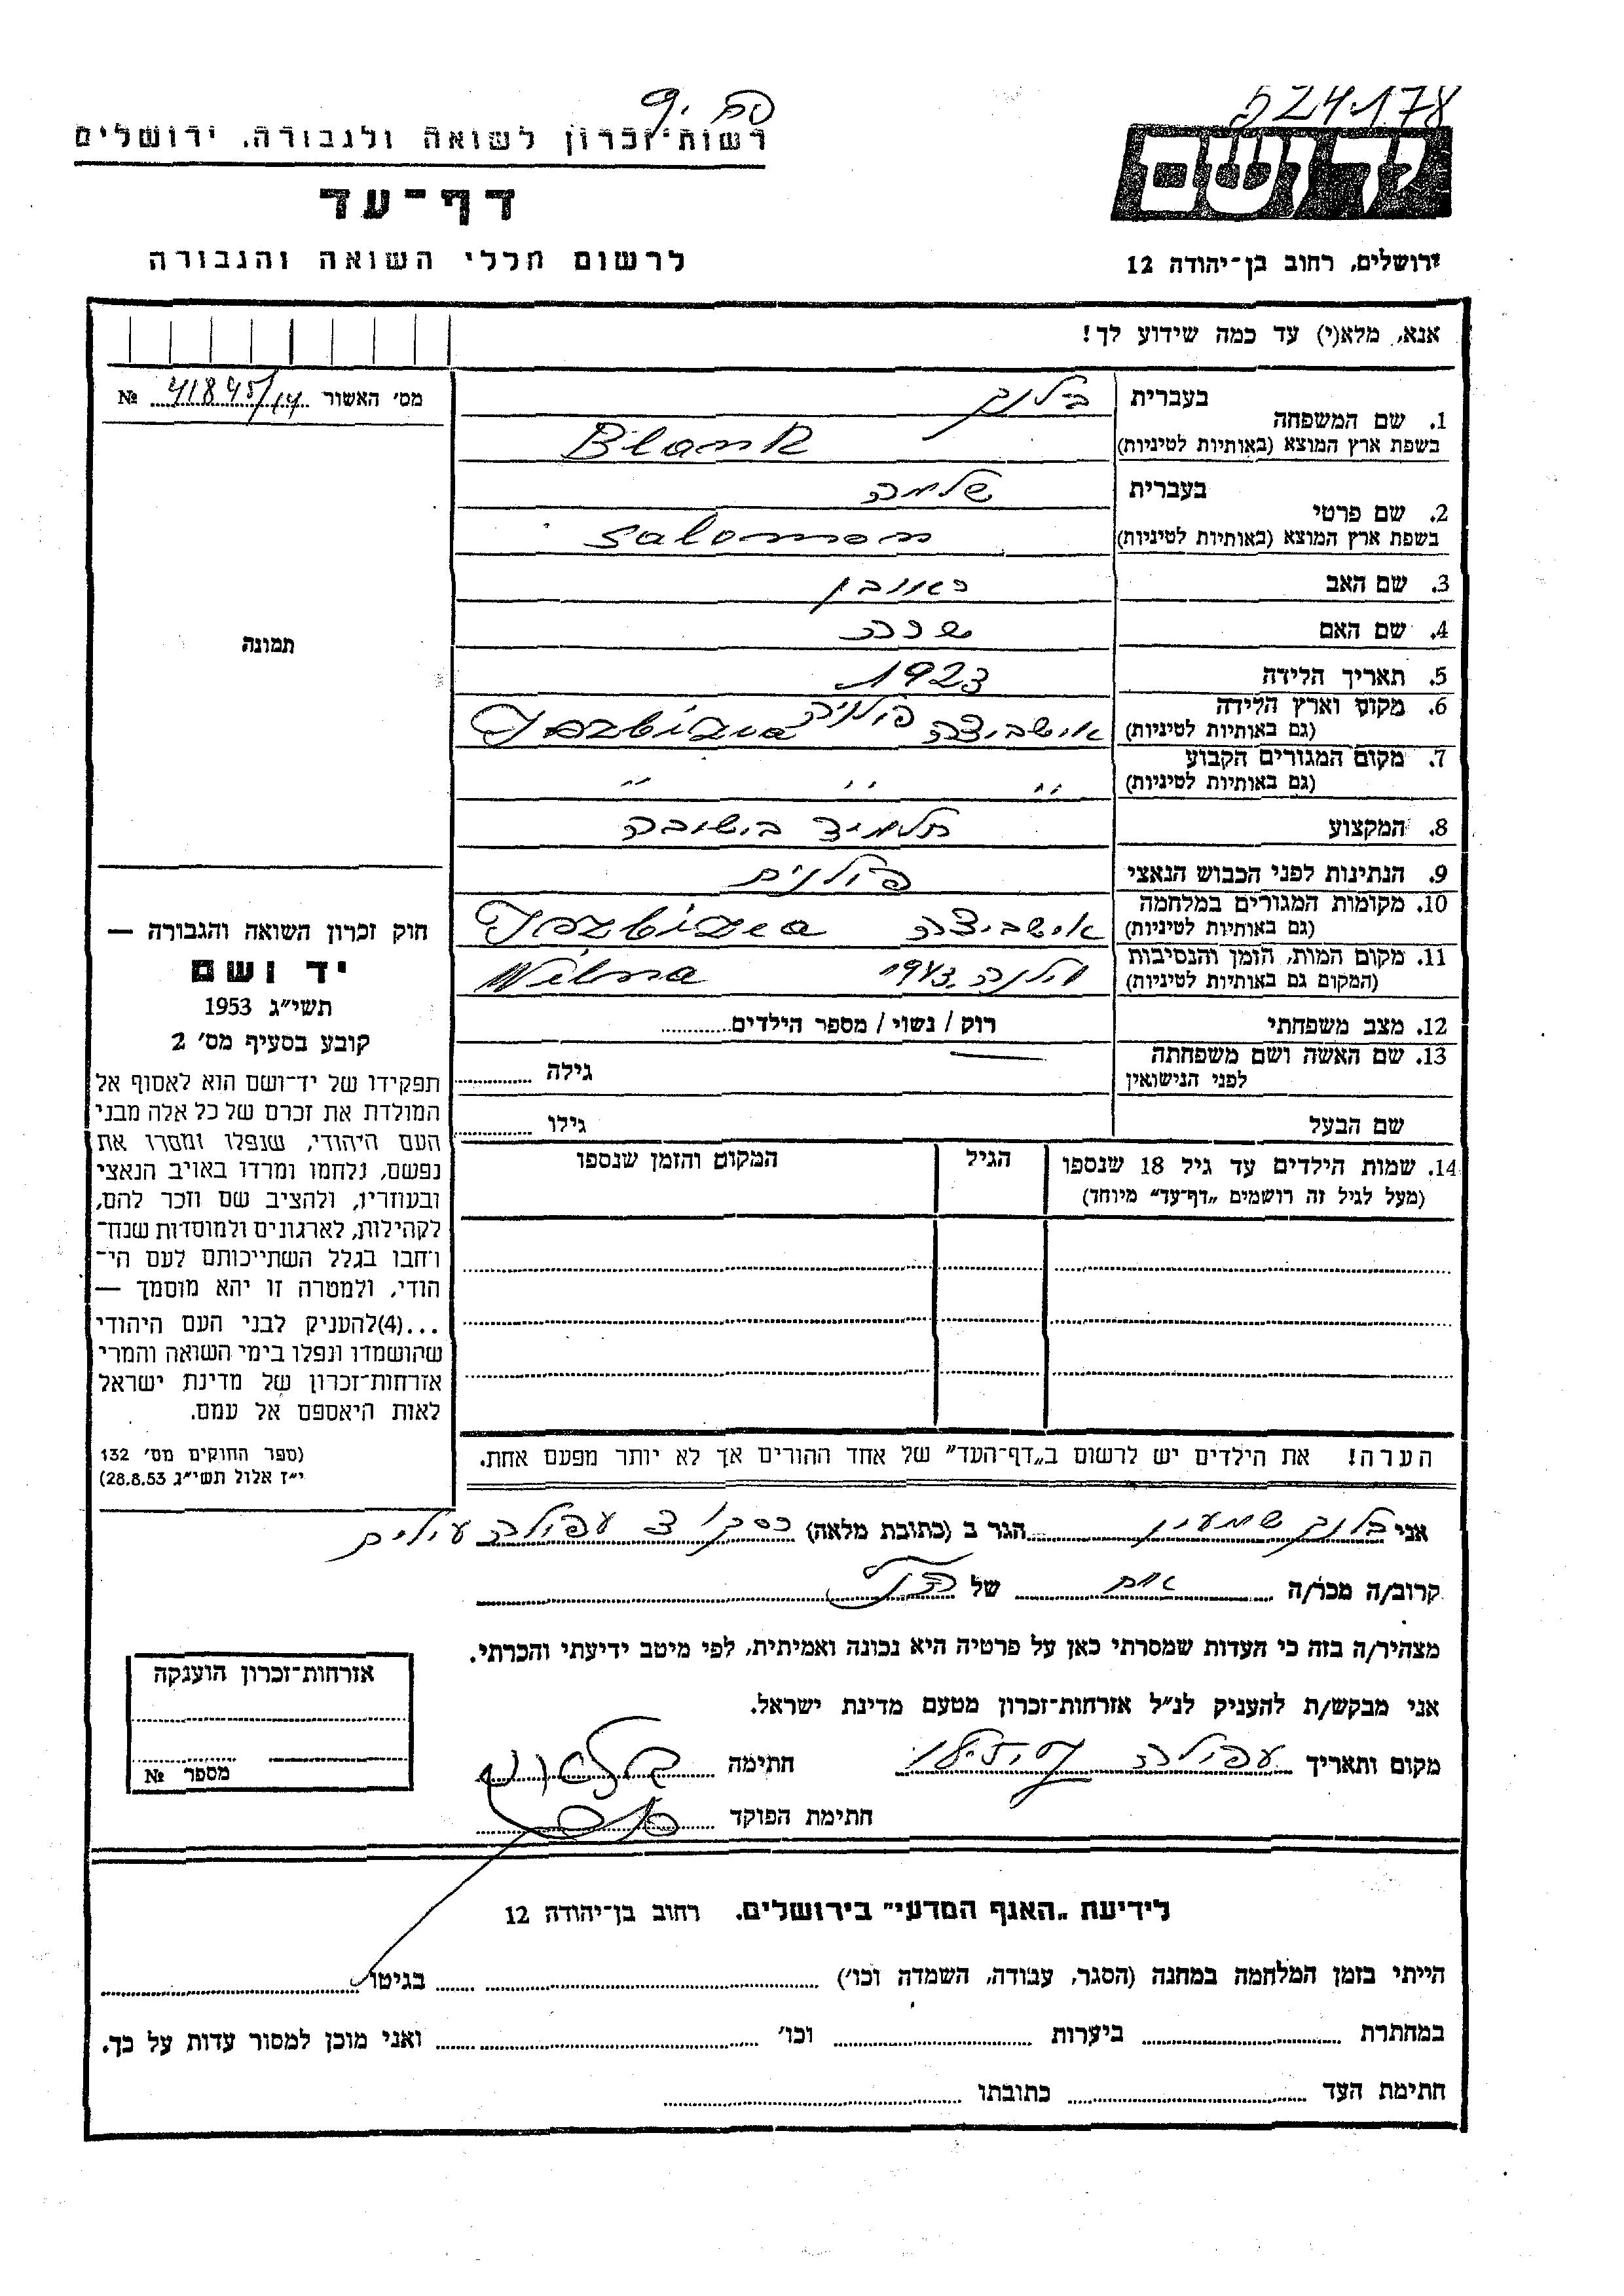 524178
רשות־זכרון לשואה ולגבורה, ירושלים
יד ושם
דף־עד
לרשום חללי השואה והגבורה
ירושלים, רחוב בן־יהודה 12
אנא, מלא(י) עד כמה שידוע לך!
מס׳ האשור № 41845/14
1. שם המשפחה
בעברית בלנק
בשפת ארץ המוצא (באותיות לטיניות) Blank
2. שם פרטי
בעברית שלמה
בשפת ארץ המוצא (באותיות לטיניות) Salomon
3. שם האב ראובן
4. שם האם שרה
5. תאריך הלידה 1923
6. מקום וארץ הלידה
(גם באותיות לטיניות) אישביצה פולניה Izbica
7. מקום המגורים הקבוע
(גם באותיות לטיניות) " " "
8. המקצוע תלמיד בישיבה
9. הנתינות לפני הכבוש הנאצי פולנית
10. מקומות המגורים במלחמה
(גם באותיות לטיניות) אישביצה
11. מקום המות, הזמן והנסיבות
(המקום גם באותיות לטיניות) וילנה 1943 Wilna
12. מצב משפחתי רוק / נשוי / מספר הילדים
13. שם האשה ושם משפחתה
לפני הנישואין גילה
שם הבעל גילו
14. שמות הילדים עד גיל 18 שנספו
(מעל לגיל זה רושמים „דף־עד" מיוחד)
הגיל
המקום והזמן שנספו
הערה! את הילדים יש לרשום ב„דף־העד" של אחד ההורים אך לא יותר מפעם אחת.
תמונה
חוק זכרון השואה והגבורה —
יד ושם
תשי״ג 1953
קובע בסעיף מס׳ 2
תפקידו של יד־ושם הוא לאסוף אל
המולדת את זכרם של כל אלה מבני
העם היהודי, שנפלו ומסרו את
נפשם, נלחמו ומרדו באויב הנאצי
ובעוזריו, ולהציב שם וזכר להם,
לקהילות, לארגונים ולמוסדות שנח־
רבו בגלל השתייכותם לעם הי־
הודי, ולמטרה זו יהא מוסמך —
...(4)להעניק לבני העם היהודי
שהושמדו ונפלו בימי השואה והמרי
אזרחות־זכרון של מדינת ישראל
לאות היאספם אל עמם.
(ספר החוקים מס׳ 132
י״ז אלול תשי״ג 28.8.53)
אני בלנק שמעון הגר ב (כתובת מלאה) עפולה עילית
קרוב/ה מכר/ה אח של הנ״ל
מצהיר/ה בזה כי העדות שמסרתי כאן על פרטיה היא נכונה ואמיתית, לפי מיטב ידיעתי והכרתי.
אני מבקש/ת להעניק לנ״ל אזרחות־זכרון מטעם מדינת ישראל.
מקום ותאריך עפולה חתימה
חתימת הפוקד
אזרחות־זכרון הוענקה
מספר №
לידיעת „האגף המדעי" בירושלים. רחוב בן־יהודה 12
הייתי בזמן המלחמה במחנה (הסגר, עבודה, השמדה וכו׳) בגיטו
במחתרת ביערות וכו׳ ואני מוכן למסור עדות על כך.
חתימת העד כתובתו